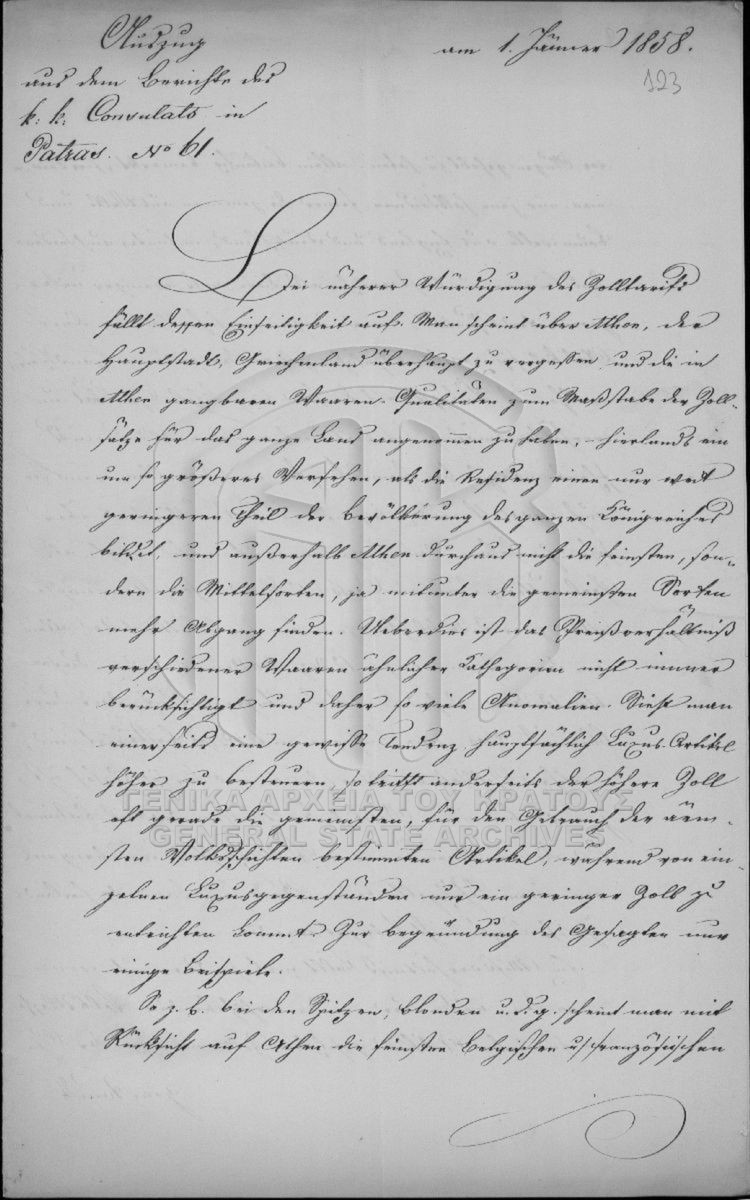 Auszug
aus dem Berichte des
k: k: Consulats in
Patras. No 61.
am 1. Jänner 1858.
123
Bei näherer Würdigung des Zolltarifs
fällt dessen Einseitigkeit auf. Man scheint über Athen, der
Hauptstadt, Griechenland überhaupt zu vergessen und die in
Athen gangbaren Waaren-Qualitäten zum Maßstabe der Zoll-
sätze für das ganze Land angenommen zu haben, – hierlands ein
um so größeres Versehen, als die Residenz einen nur weit
geringeren Theil der Bevölkerung des ganzen Königreiches
bildet, und außerhalb Athen durchaus nicht die feinsten, son-
dern die Mittelsorten, ja mitunter die gemeinsten Sorten
mehr Absatz finden. Ueberdies ist das Preisverhältniß
verschiedener Waaren ähnlicher Kathegorien nicht immer
berücksichtigt und daher so viele Anomalien. Sieht man
einerseits eine gewisse Tendenz hauptsächlich Luxus-Artikel
höher zu besteuern, so trifft anderseits der höhere Zoll
oft gerade die gemeinsten, für den Gebrauch der ärm-
sten Volksschichten bestimmten Artikel, während von ein-
zelnen Luxusgegenständen nur ein geringer Zoll zu
entrichten kommt. Zur Begründung des Gesagten nur
einige Beispiele.
So z. B. bei den Spitzen, Blonden u. d. g. scheint man mit
Rücksicht auf Athen die feinsten Belgischen u. französischen
ΓΕΝΙΚΑ ΑΡΧΕΙΑ ΤΟΥ ΚΡΑΤΟΥΣ
GENERAL STATE ARCHIVES